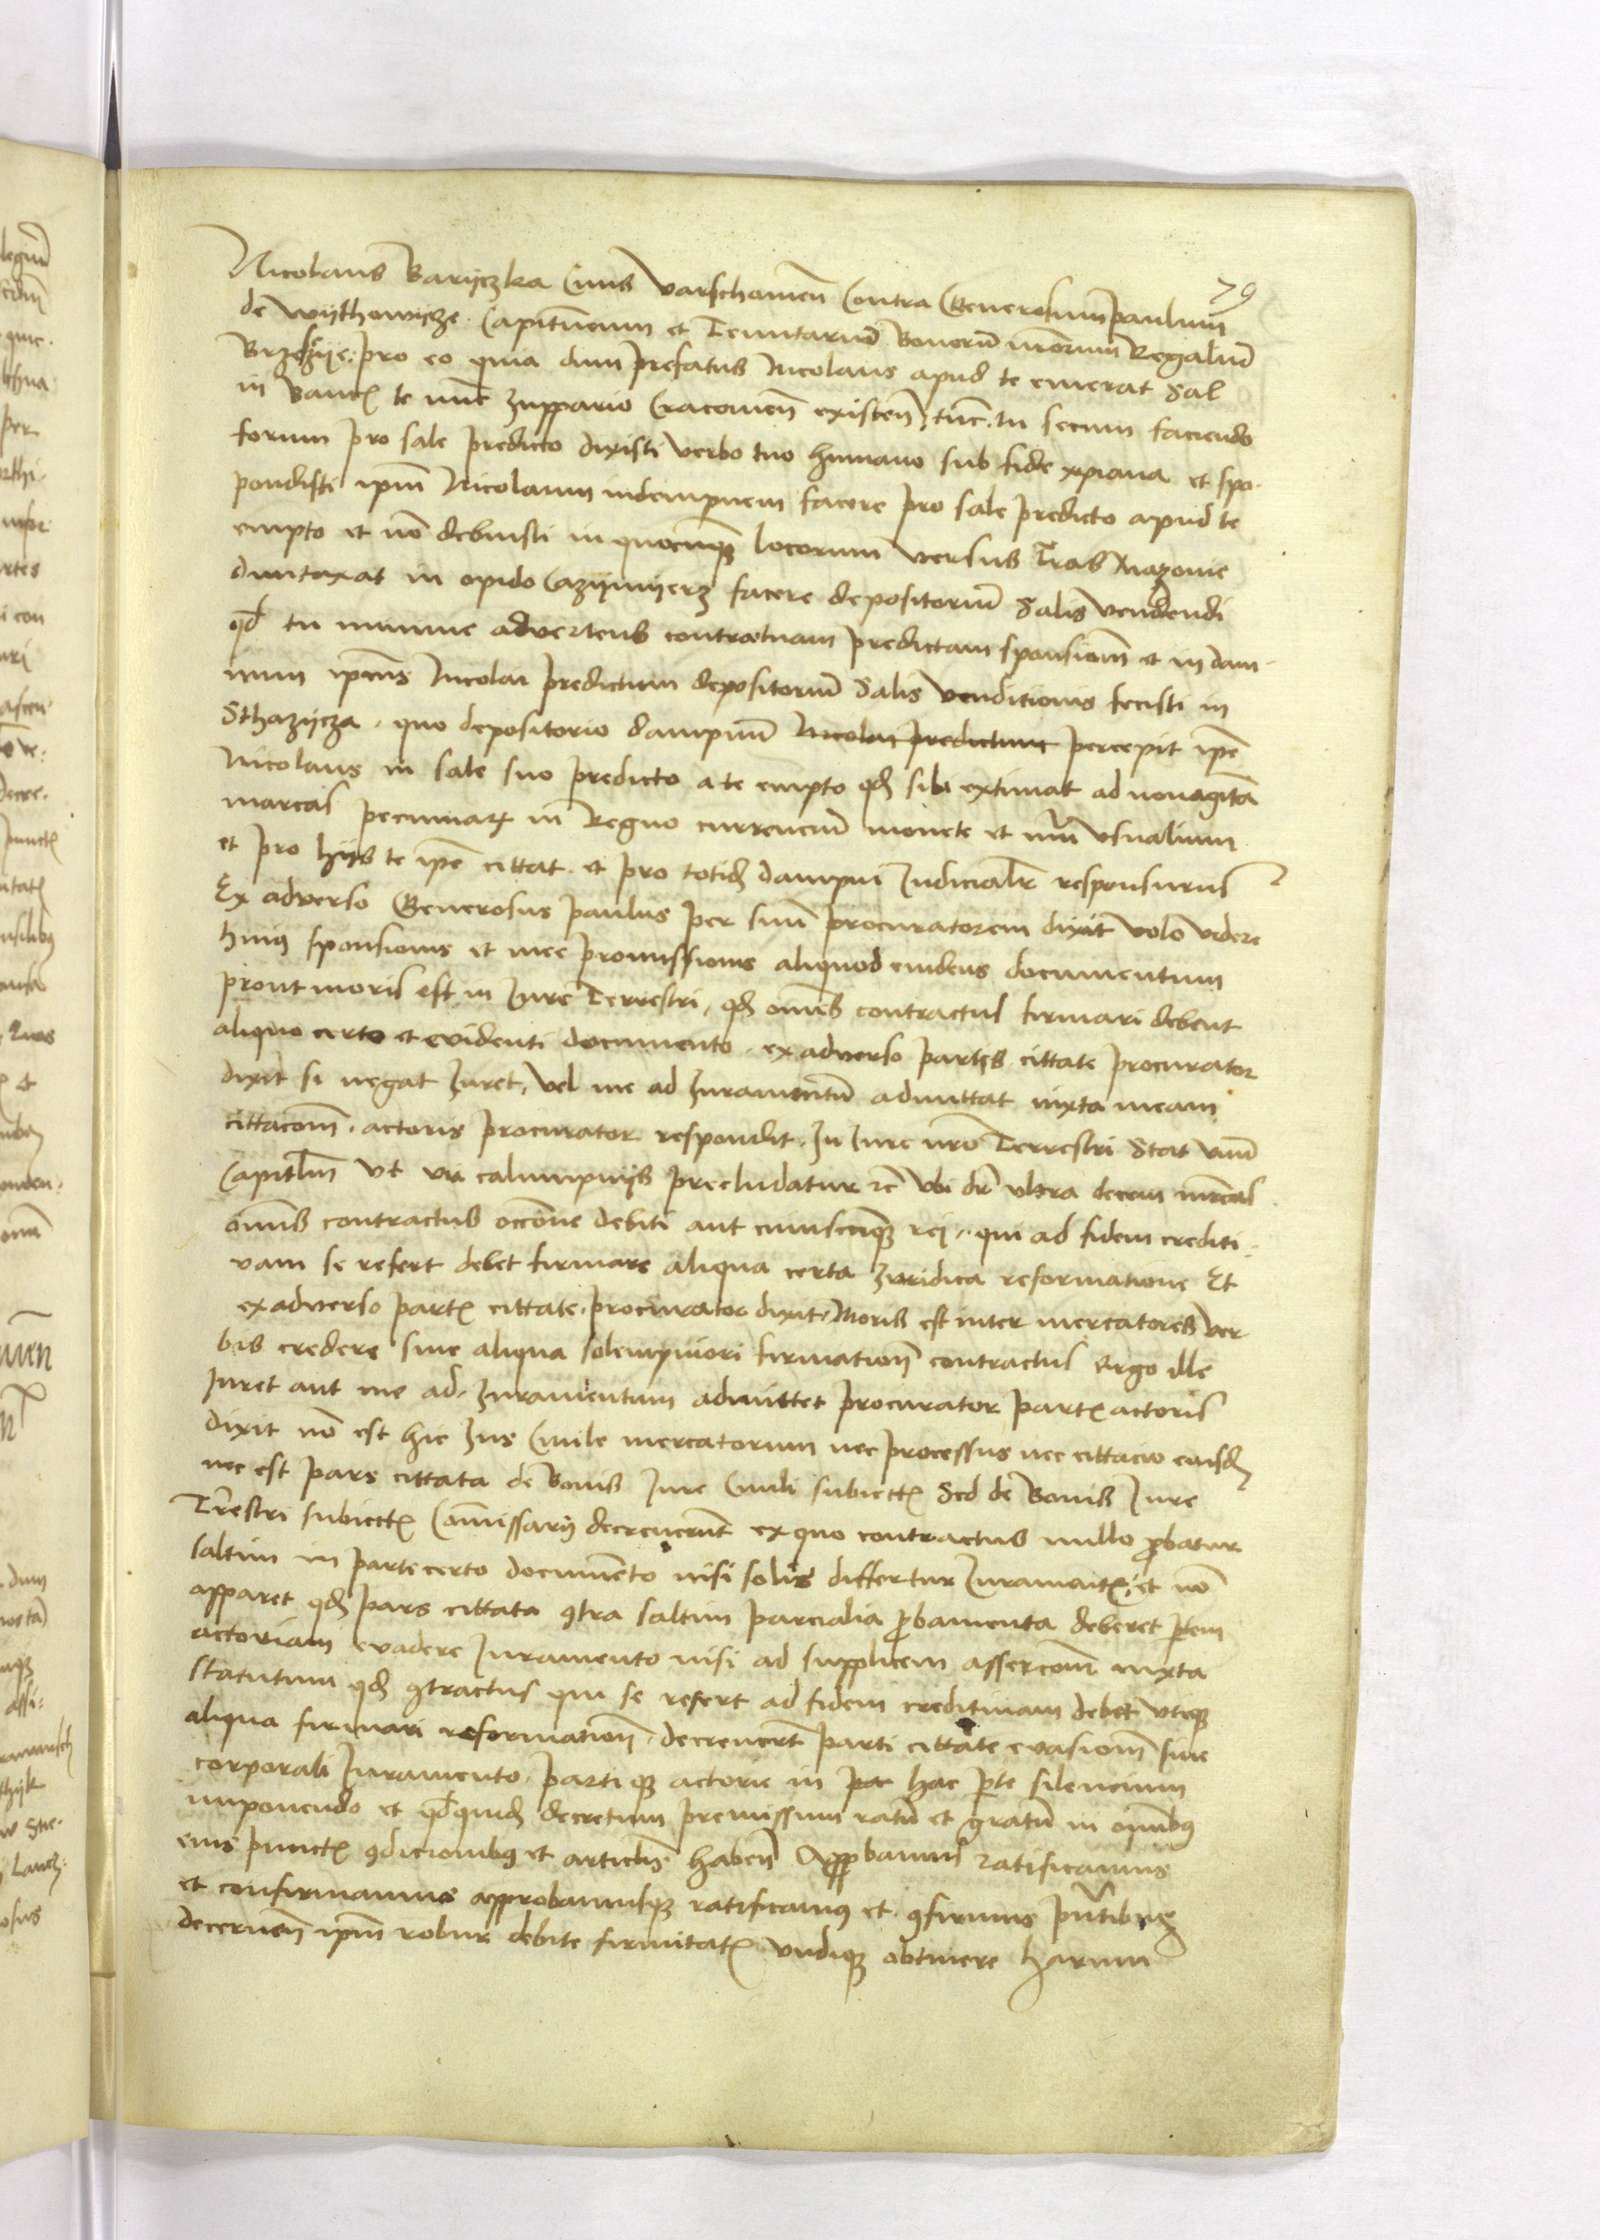 79
Nicolaus Baryczka Civis Varschavien Contra Generosum paulum
de wythowycze Capitaneum et Tenutarium Bonorum nrorum Regalium
Brzesczye pro eo quia dum prefatus Nicolaus apud te emerat Sal
in Banc te tunc zuppario Cracovien existen tunc tu secum faciendo
forum pro sale predicto dixisti verbo tuo humano sub fide xpiana et spo-
pondisti ipm Nicolaum indempnem facere pro sale predicto apud te
empto et no debuisti in quocunq locorum versus Tras Mazovie
duntaxat in opido Cazymyerz facere depositorium Salis vendendi
qd tu minime advertens contra tuam predictam sponsionem et in dam-
num ipius Nicolai predictum depositorium Salis venditionis fecisti in
Sthazycza quo depositorio dampnum Nicolai predictum percepit ipe
Nicolaus in sale suo predicto a te empto qd sibi extimat ad nonaginta
marcas pecuniar in Regno currencium monete et nri usualium
et pro hys te ipe cittat et pro totid dampni Judicialr responsurus
Ex adverso Generosus paulus per suum procuratorem dixit volo videre
huius sponsionis et mee promissionis aliquod evidens documentum
prout moris est in Jure Terrestri qd omnes contractus firmari debent
aliquo certo et evidenti documento ex adverso partis cittate procurator
dixit si negat Juret vel me ad Juramentum admittat iuxta meam
cittacionem actoris procurator respondit In Jure nro Terrestri Stat unum
Capitlm ut via calumpnys precludatur etc ubi dr ultra decem mrcas
omnis contractus occone debiti aut cuiuscunq rei qui ad fidem crediti-
vam se refert debet firmare aliqua certa Juridica reformatione Et
ex adverso partis cittate procurator dixit Moris est inter mercatores ver-
bis credere sine aliqua solempniori firmation contractus Ergo ille
Juret aut me ad Juramentum admittet procurator partis actoris
dixit no est hic Jus Civile mercatorum nec processus nec cittacio eiusd
nec est pars cittata de Bonis Jure Civili subiectis Sed de Bonis Jure
Trrestri subiectis Comissary decreverunt ex quo contractus nullo probatur
saltim in parte certo documento nisi solis differtur Juramentis et no
apparet qd pars cittata contra saltim parcialia probamenta deberet ptem
actoriam evadere Juramento nisi ad supplicem assercionem iuxta
statutum qd contractus qui se refert ad fidem creditivam debet utiq
aliqua firmari reformation decreverunt parti cittate evasionem sine
corporali Juramento partiq actorie in par hac pte silencium
imponendo et qdquid decretum premissum ratum et gratum in omnibus
eius punctis condicionibus et articlis haben Approbamus ratificamus
et confirmamus approbamusq ratificamus et confirmus pntibus
decernen ipm robur debite firmitatis undiq obtinere harum